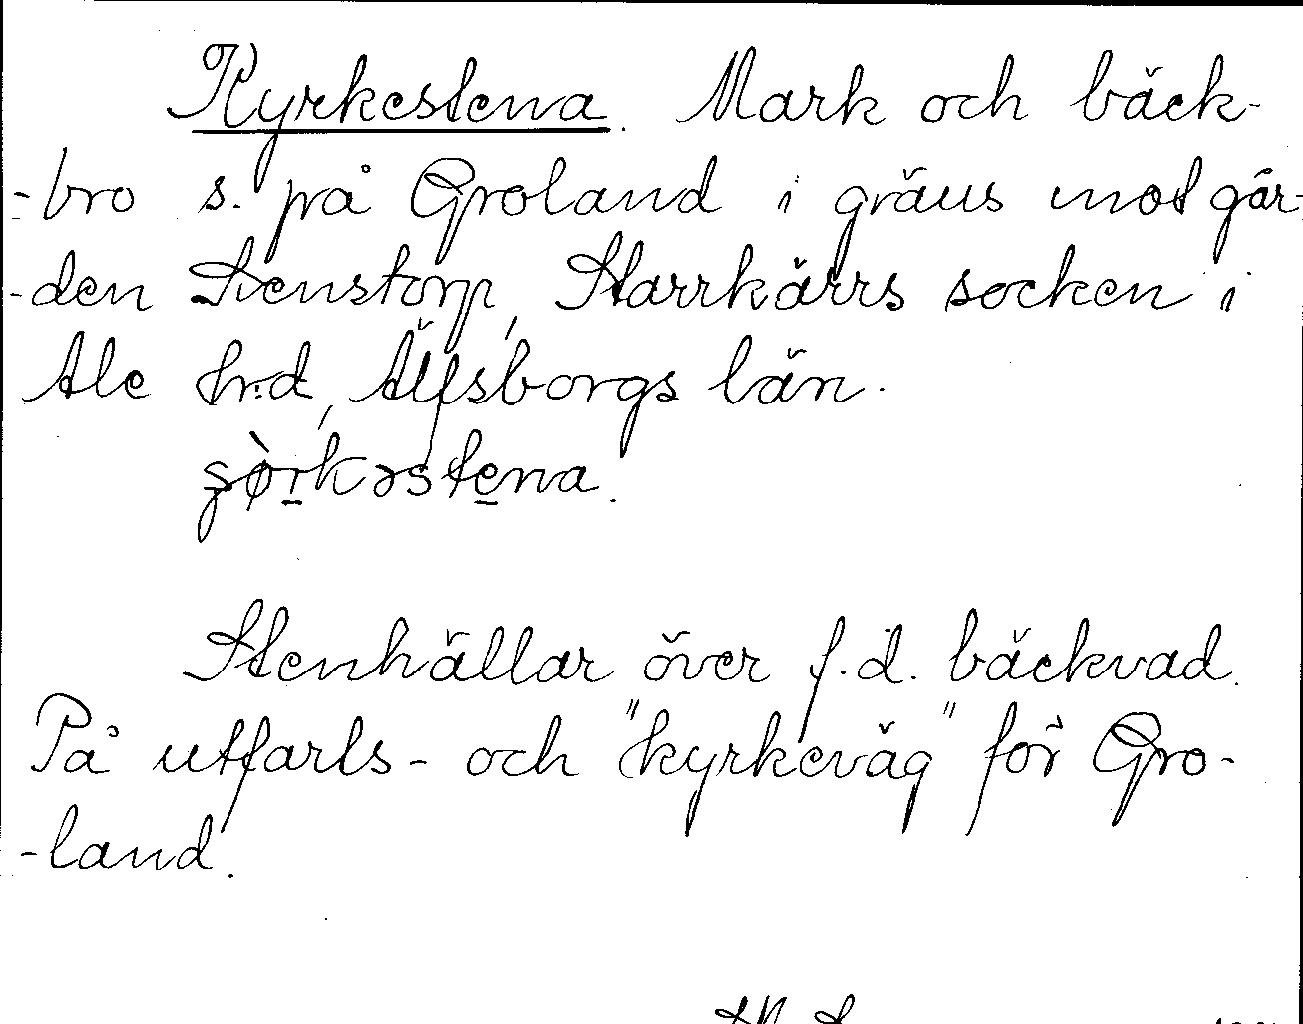 Kyrkestena. Mark och bäck-
-bro s. på Groland i gräns mot går-
-den Svenstorp, Starrkärrs socken i
Ale hrd, Älfsborgs län.
Stenhällar över f.d. bäckvad.
På utfarts- och "kyrkeväg" för Gro-
-land.